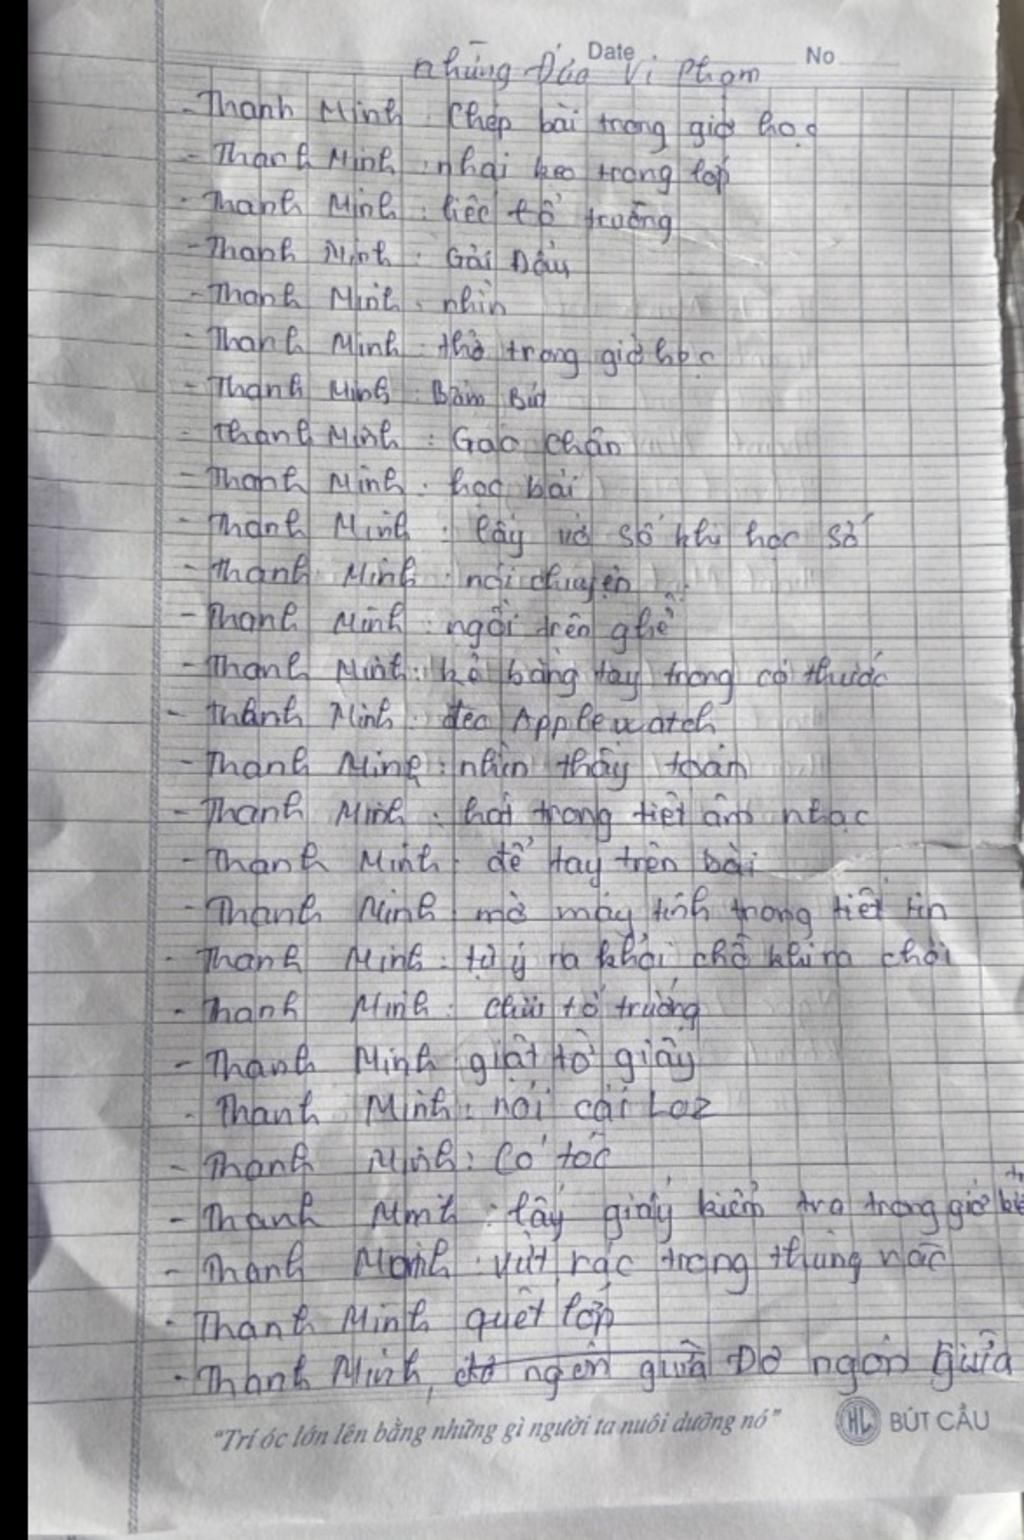 Date No
những Đứa Vi Phạm
- Thanh Minh: Chép bài trong giờ học
- Thanh Minh: nhai keo trong lớp
- Thanh Minh: liếc tổ trưởng
- Thanh Minh: Gải Đầu
- Thanh Minh: nhìn
- Thanh Minh: thở trong giờ học
- Thanh Minh: Bấm Bút
- Thanh Minh: Gac chân
- Thanh Minh: học bài
- Thanh Minh: lấy vở số khi học số
- Thanh Minh: nói chuyện
- Thanh Minh: ngồi trên ghế
- Thanh Minh: kẻ bằng tay trong có thước
- Thanh Minh: đeo Applewatch
- Thanh Minh: nhìn thầy toán
- Thanh Minh: hát trong tiết âm nhạc
- Thanh Minh: để tay trên bài
- Thanh Minh mở máy tính trong tiết tin
- Thanh Minh: tự ý ra khỏi chỗ khi ra chơi
- Thanh Minh: Chửi tổ trưởng
- Thanh Minh giật tờ giấy
- Thanh Minh: nói cái Loz
- Thanh Minh: Có tóc
- Thanh Minh: lấy giấy kiểm tra trong giờ
- Thanh Minh: vứt rác trong thùng rác
- Thanh Minh quét lớp
- Thanh Minh, ngón giữa Dơ ngón giữa
"Trí óc lớn lên bằng những gì người ta nuôi dưỡng nó" HL BÚT CẦU